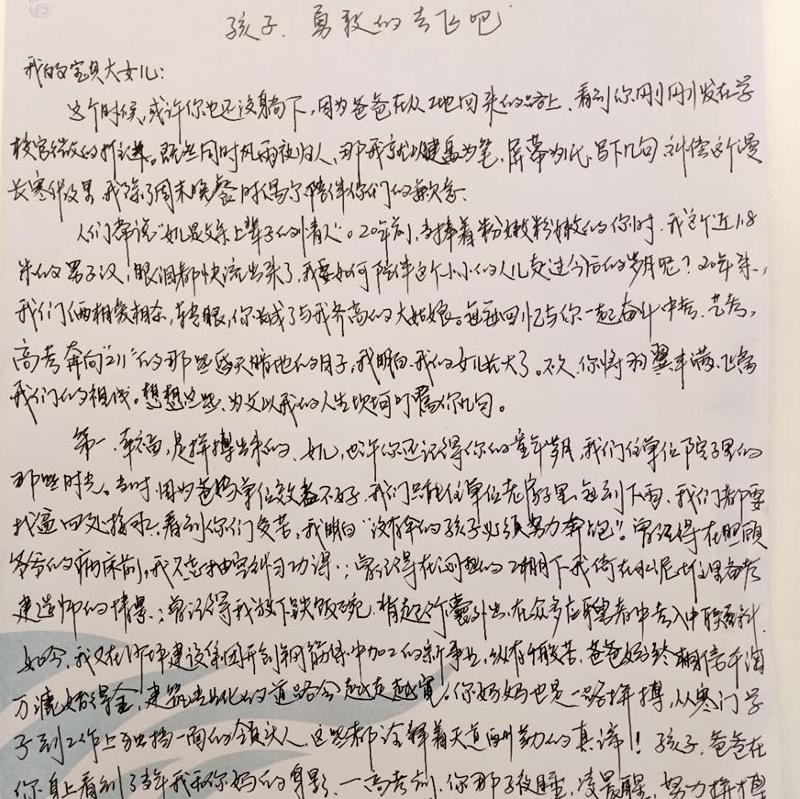 孩子.勇敢的去飞吧
我的宝贝大女儿:
这个时候,或许你也还没躺下,因为爸爸在从工地回来的路上,看到你刚刚发在学
校官微的推送。既然同时风雨夜归人,那我就以键盘为笔,屏幕为纸,写下几句补偿这个漫
长寒假以来我除了周末晚餐时偶尔陪伴你们的歉疚。
人们常说"女儿是父亲上辈子的小情人"。20年前,当捧着粉嫩粉嫩的你时,我这个近1.8
米的男子汉,眼泪都快流出来了,我要如何陪伴这个小小的人儿走过今后的岁月呢?20年来,
我们俩相爱相杀,转眼,你就成了与我齐高的大姑娘。每每回忆与你一起奋斗中考、艺考,
高考奔向"211"的那些昏天暗地的日子,我明白,我的女儿长大了。不久,你将羽翼丰满,飞离
我们的视线。想想这些,为父以我的人生坎坷叮嘱你几句。
第一,幸福,是拼搏出来的。女儿,也许你还记得你的童年岁月,我们住单位院子里的
那些时光。当时,因为爸妈单位效益不好,我们只能住单位老房子里,每到下雨,我们都要
找盆四处接水,看到你们受苦,我明白"没有伞的孩子必须努力奔跑"。曾记得在照顾
爷爷的病床前,我不忘抽空补习功课;曾记得在闷热的工棚下我倚在水泥堆里备考
建造师的情景;曾记得我放下铁饭碗,背起行囊外出,在众多应聘者中考入中联重科.
如今,我又在 坤建设集团开创钢筋集中加工的新事业,纵有千般苦,爸爸始终相信千淘
万漉始得金,建筑产业化的道路会越走越宽。你妈妈也是一路拼搏,从寒门学
子到工作上独挡一面的领头人,这些都诠释着天道酬勤的真谛!孩子,爸爸在
你身上看到了当年我和你妈的身影,高考前,你那子夜睡,凌晨醒,努力拼搏